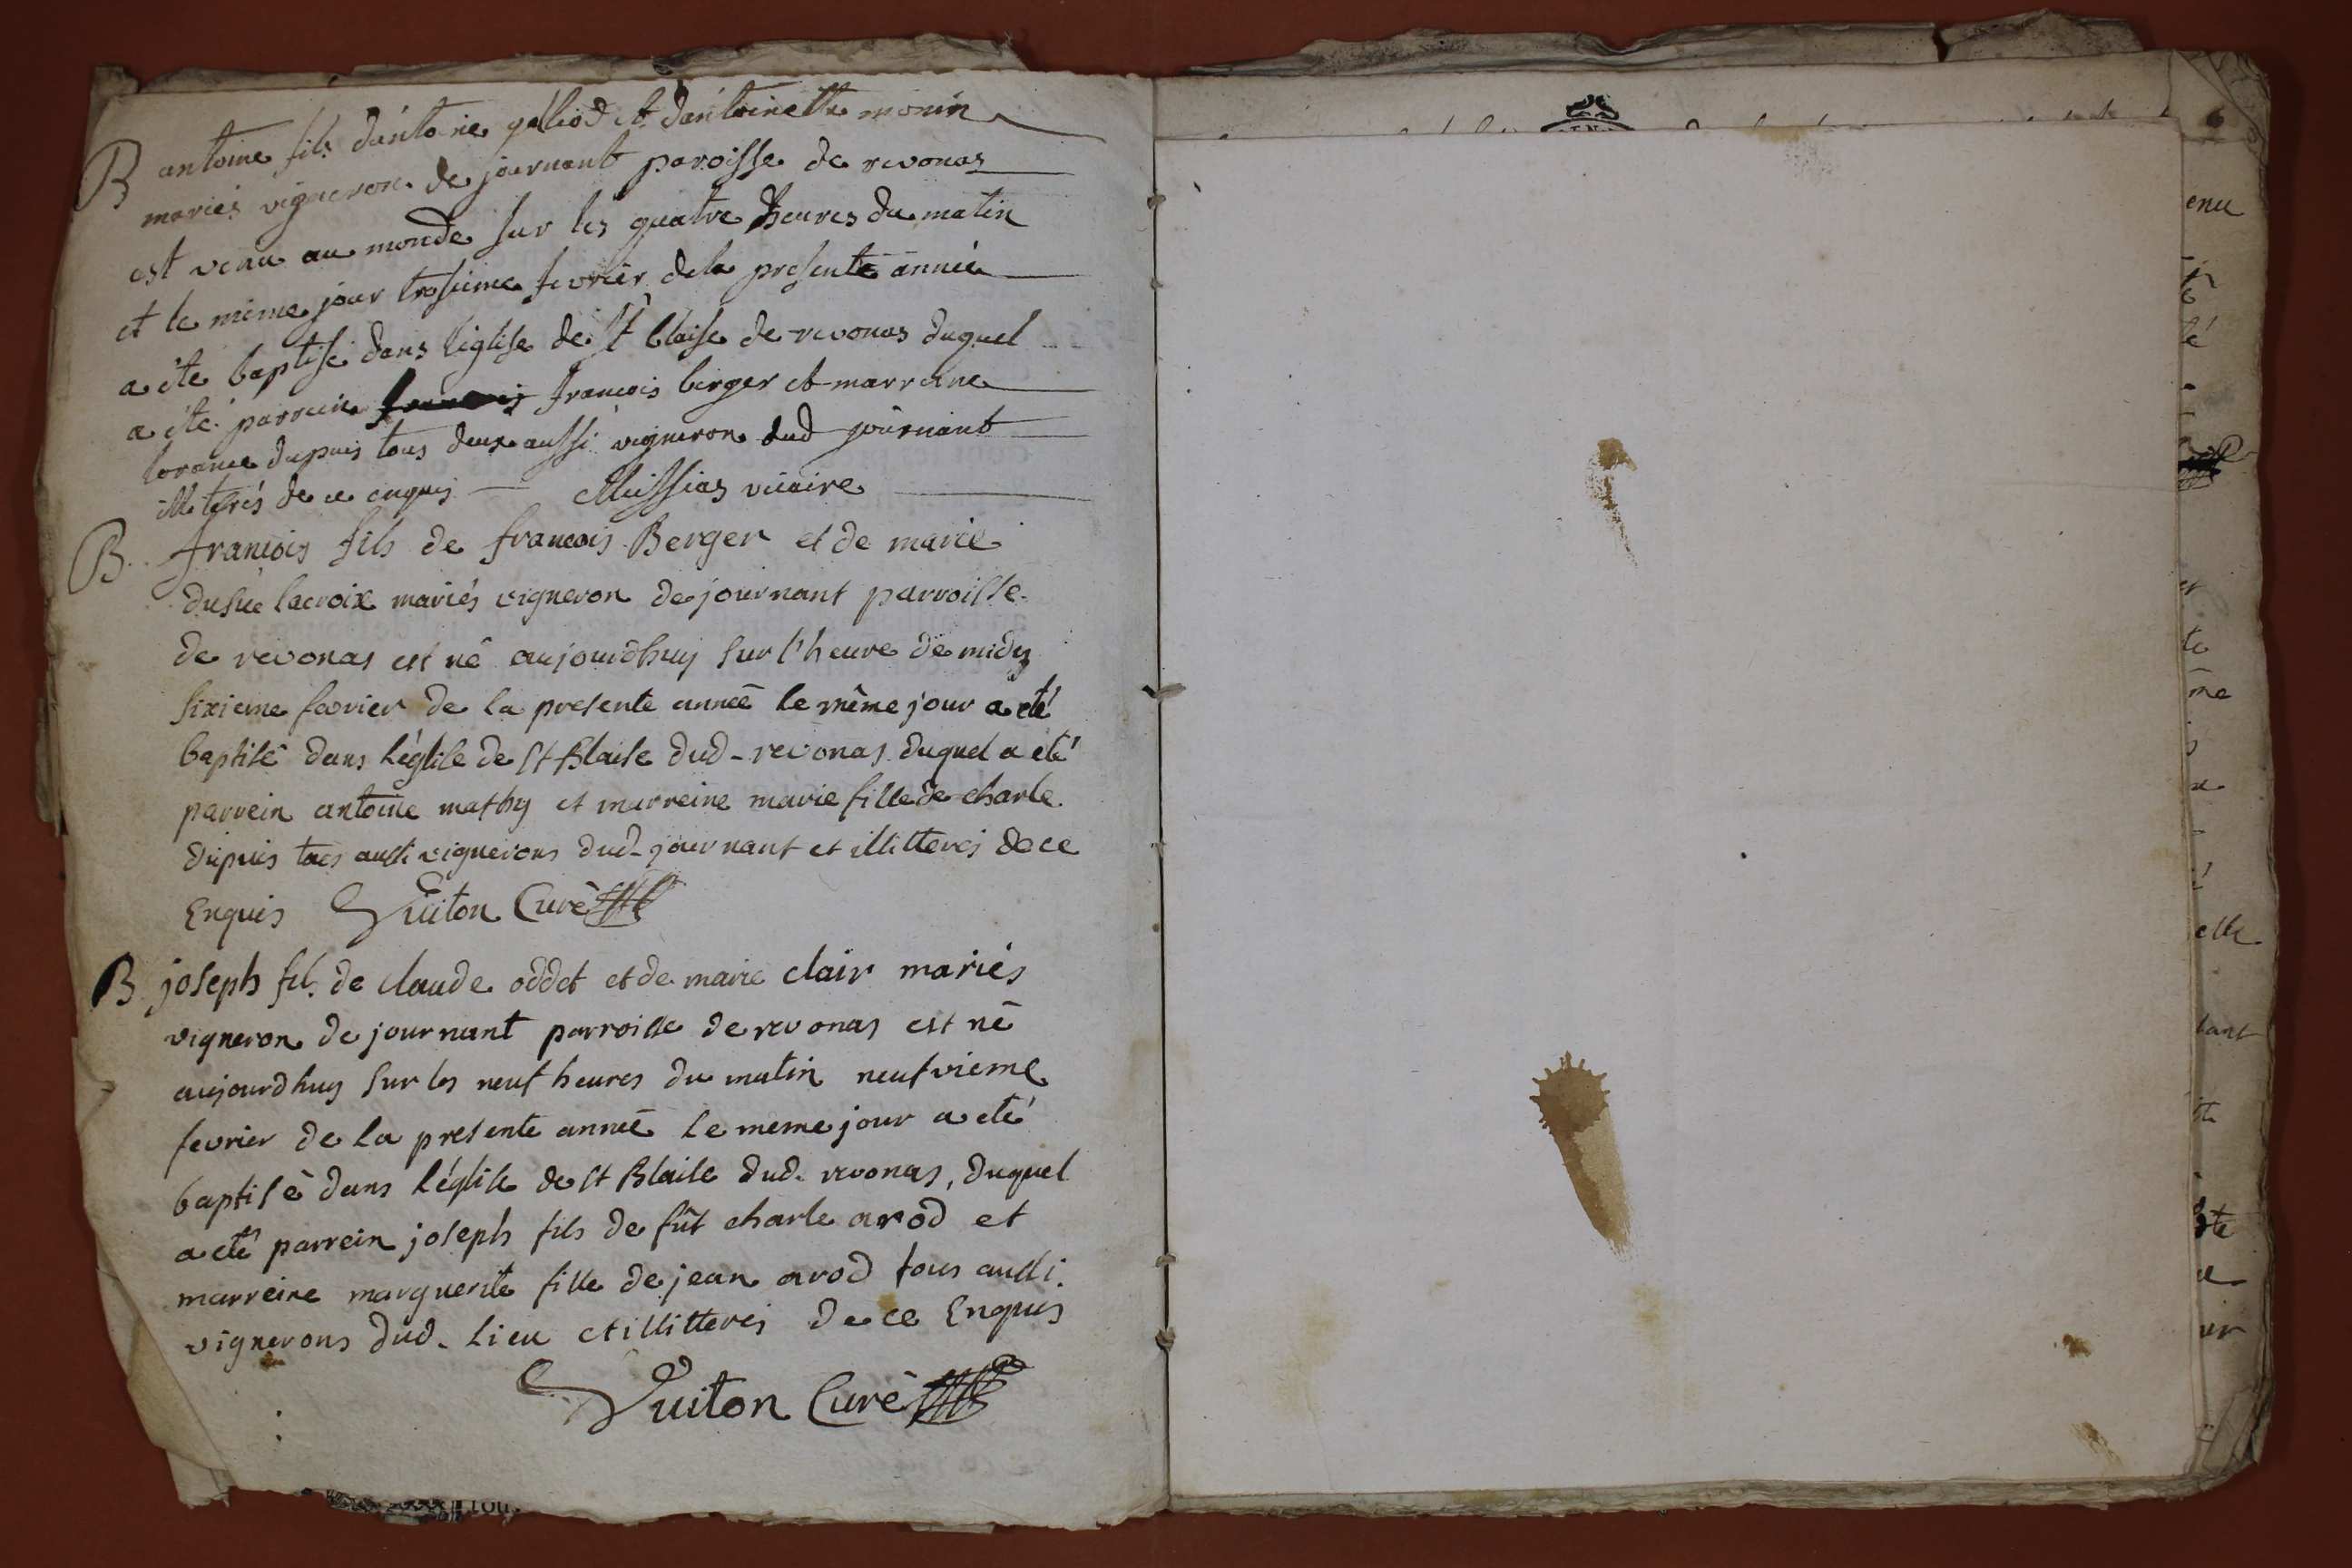 B antoine fils d'antoine galliod et d'antoinette monin
mariés vigneron de journant paroisse de revonas
est venu au monde sur les quatre heures du matin
et le même jour trosieme fevrier de la presente année
a éte baptisé dans l'eglise de st blaise de revonas duquel
a été parrein françois berger et marreine
lorance dupuis tous deux aussi vigneron dud journant
illiterés de ce enquis vicaire
B. françois fils de francois Berger et de marie
lacroix mariés vigneron de journant parroisse
de revonas est né aujourdhuy sur l'heure de midy
sixieme fevrier de la presente année le même jour a été
baptisé dans l'église de St Blaise dud. revonas duquel a été
parrein antoine mathy et marreine marie fille de charle
dupuis tous aussi vignerons dud. journant et illitterés de ce
Enquis Vuiton Curé
B. joseph fils de claude oddet et de marie clair mariés
vigneron de journant parroisse de revonas est né
aujourdhuy sur les neuf heures du matin neufvieme
fevrier de la presente année le meme jour a eté
baptisé dans l'église de St Blaise dud. revonas, duquel
a eté parrein joseph fils de fût charle arod et
marreine marguerite fille de jean arod tous aussi
vignerons dud. lieu et illitterés de ce Enquis
Vuiton Curé
6
enu
lé
et
te
me
elle
tant
ite